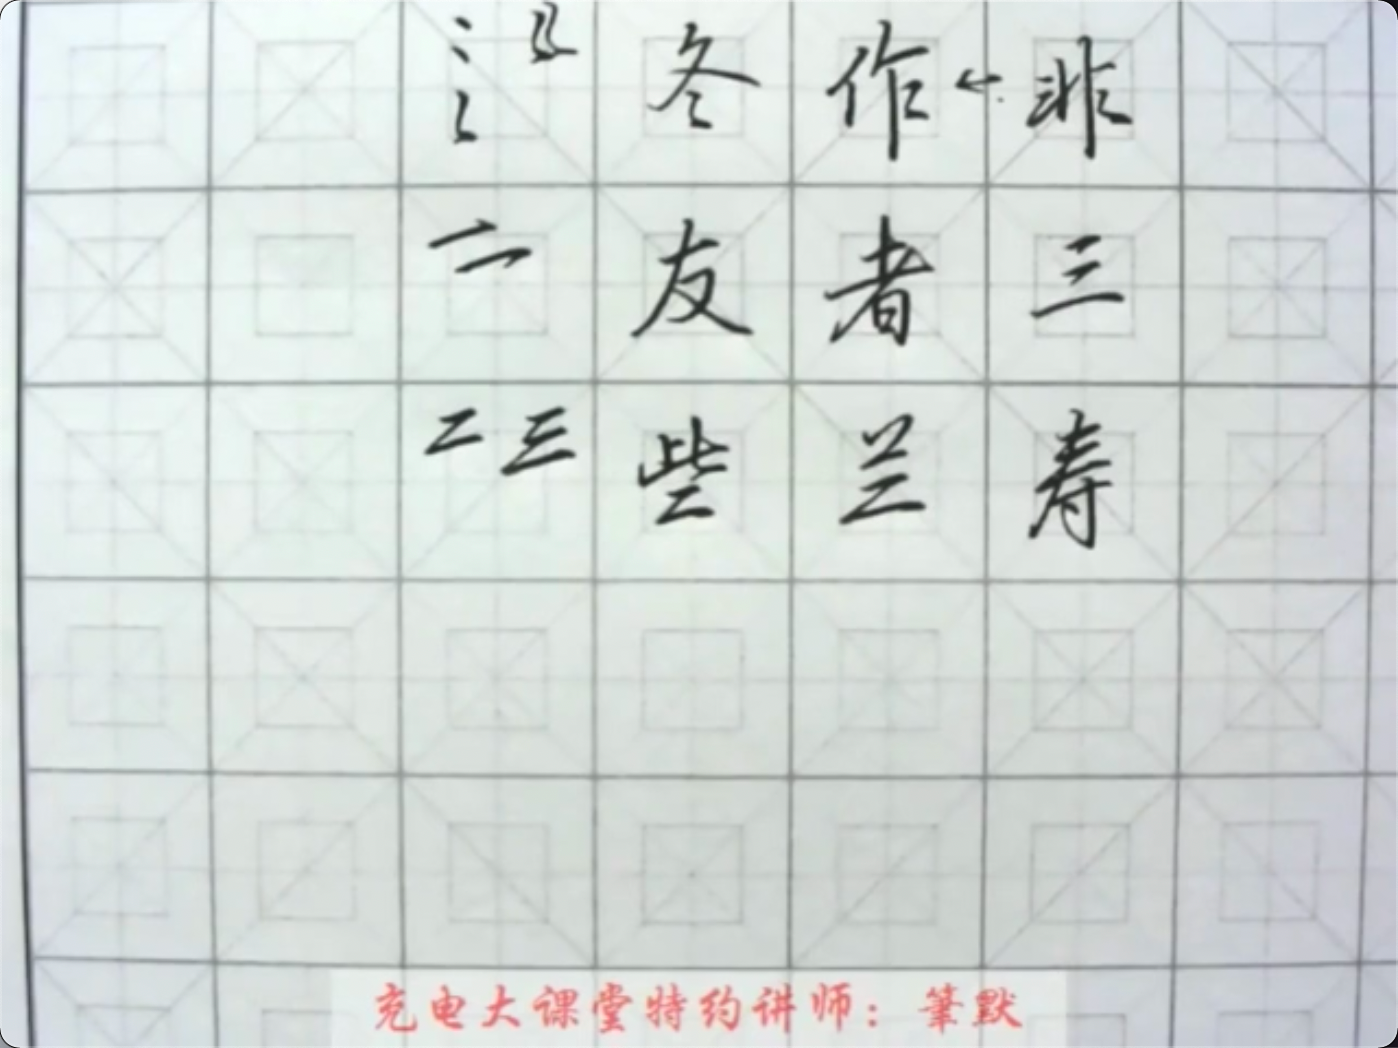 冬作非
二友者三
二三些兰寿
充电大课堂特约讲师：筆默